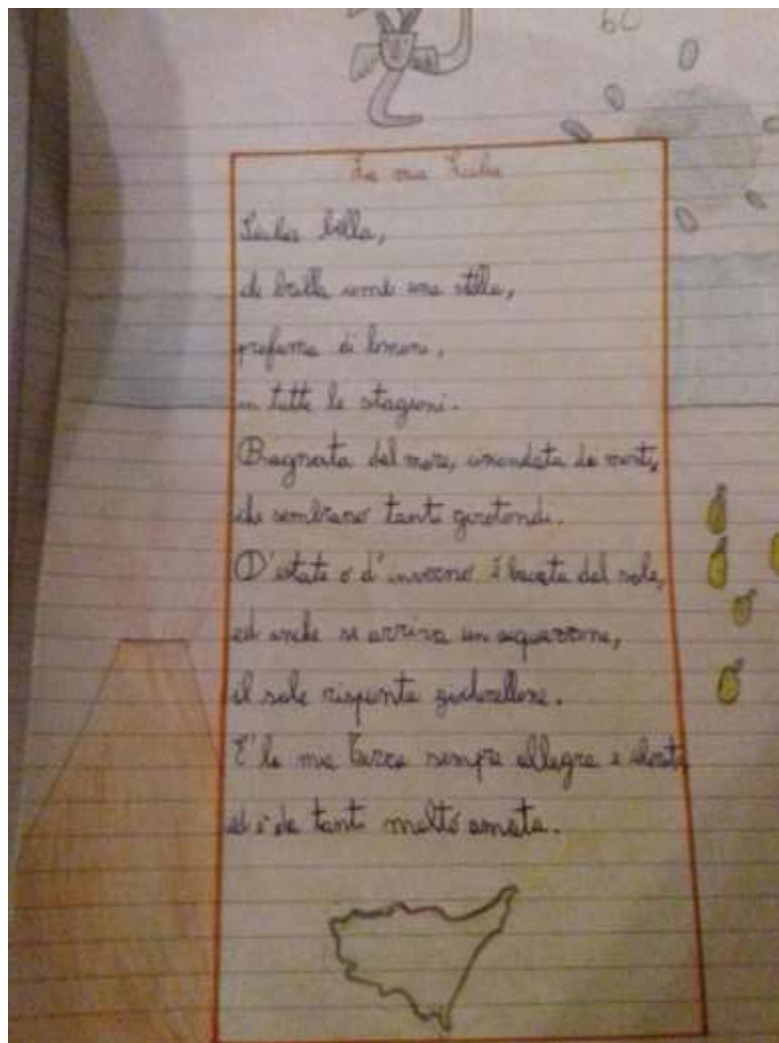 La mia Sicilia
Sicilia bella,
che brilla come una stella,
profuma di limoni,
in tutte le stagioni.
Bagnata dal mare, circondata da monti,
che sembrano tanti girotondi.
D'estate o d'inverno è baciata dal sole,
ed anche se arriva un acquazzone,
il sole rispunta giocherellone.
E' la mia terra sempre allegra e
ed è da tanti molto amata.